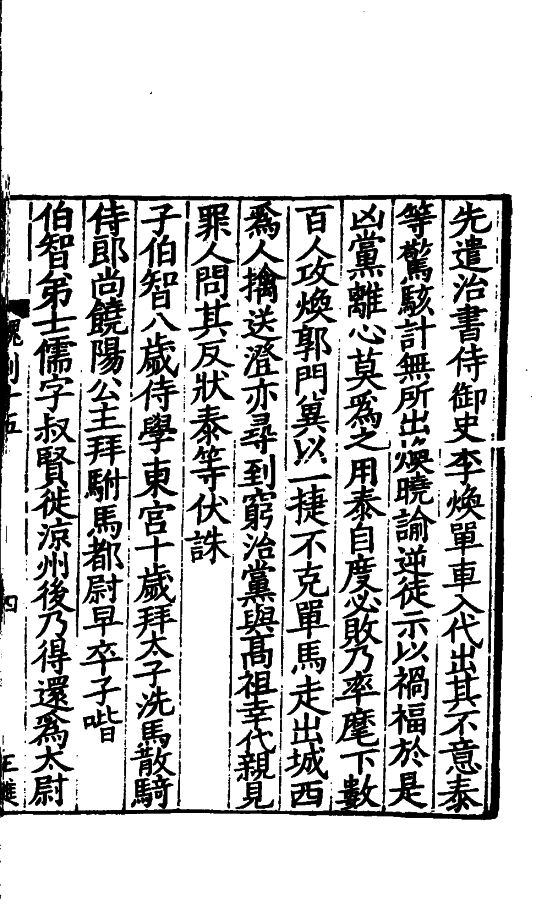 先遣治書侍御史李煥單車入代出其不意泰
等驚駭計無所出煥曉諭逆徒示以禍福於是
凶黨離心莫爲之用泰自度必敗乃率麾下數
百人攻煥郭門冀以一捷不克單馬走出城西
爲人擒送澄亦尋到窮治黨與高祖幸代親見
罪人問其反狀泰等伏誅
子伯智八歲侍學東宮十歲拜太子洗馬散騎
侍郎尚饒陽公主拜駙馬都尉早卒子喈
伯智弟士儒字叔賢徙涼州後乃得還爲太尉
四